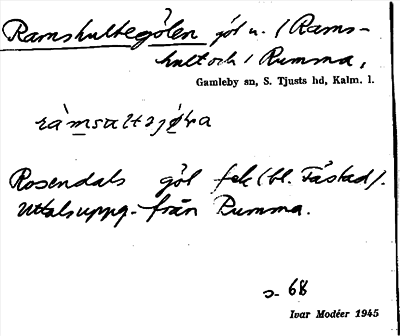 Ramshultegölen göl u. (Rams-
hult och) Rumma,
Gamleby sn, S. Tjusts hd, Kalm. l.
Rosendals göl fek (bl. Fåstad).
Uttalsuppg. från Rumma.
68
Ivar Modéer 1945